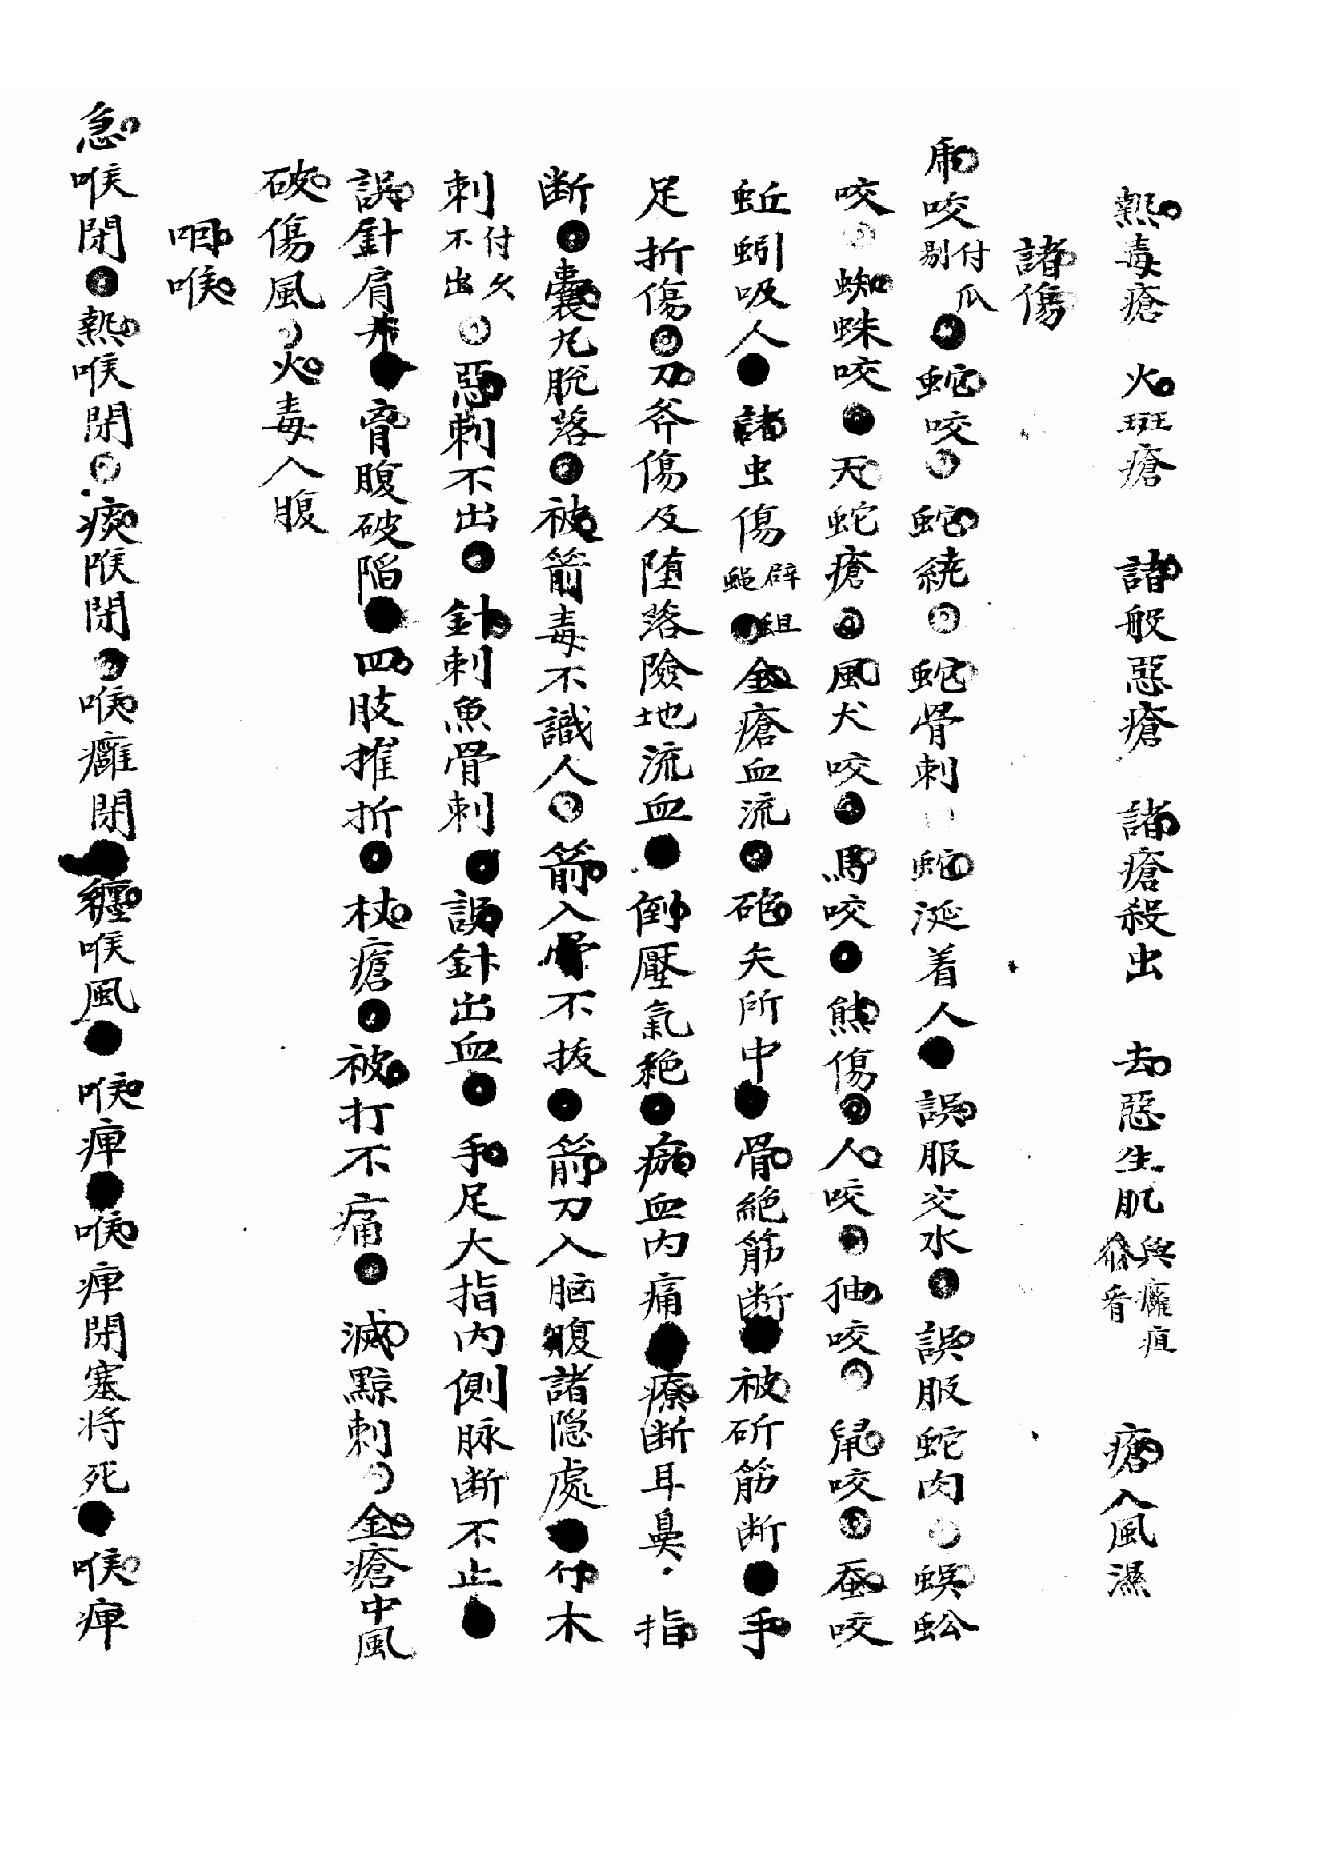 熱毒瘡 火斑瘡 諸般惡瘡 諸瘡殺虫 去惡生肌與癰疽叅看 瘡入風濕
諸傷
虎咬付爪剔 蛇咬 蛇繞 蛇骨刺 蛇涎着人 誤服交水 誤服蛇肉 蜈蚣
咬 蜘蛛咬 天蛇瘡 風犬咬 馬咬 熊傷 人咬 咬 鼠咬 蚕咬
蚯蚓吸人 諸虫傷 金瘡血流 砲矢所中 骨絶筋断 被斫筋断 手
足折傷 刀斧傷及堕落險地流血 倒壓氣絶 瘀血內痛 療断耳鼻 指
断 囊丸脫落 被箭毒不識人 箭入骨不拔 箭刀入脑腹諸隐處 竹木
刺付久不出 惡刺不出 針刺魚骨刺 誤針出血 手足大指内側脉断不止
誤針肩井 育腹破陷 四肢摧折 杖瘡 被打不痛 滅黥刺 金瘡中風
破傷風 火毒入腹
咽喉
急喉閉 熱喉閉 痰喉閉 喉癰閉 纏喉風 喉痺 喉痺閉塞将死 喉痺